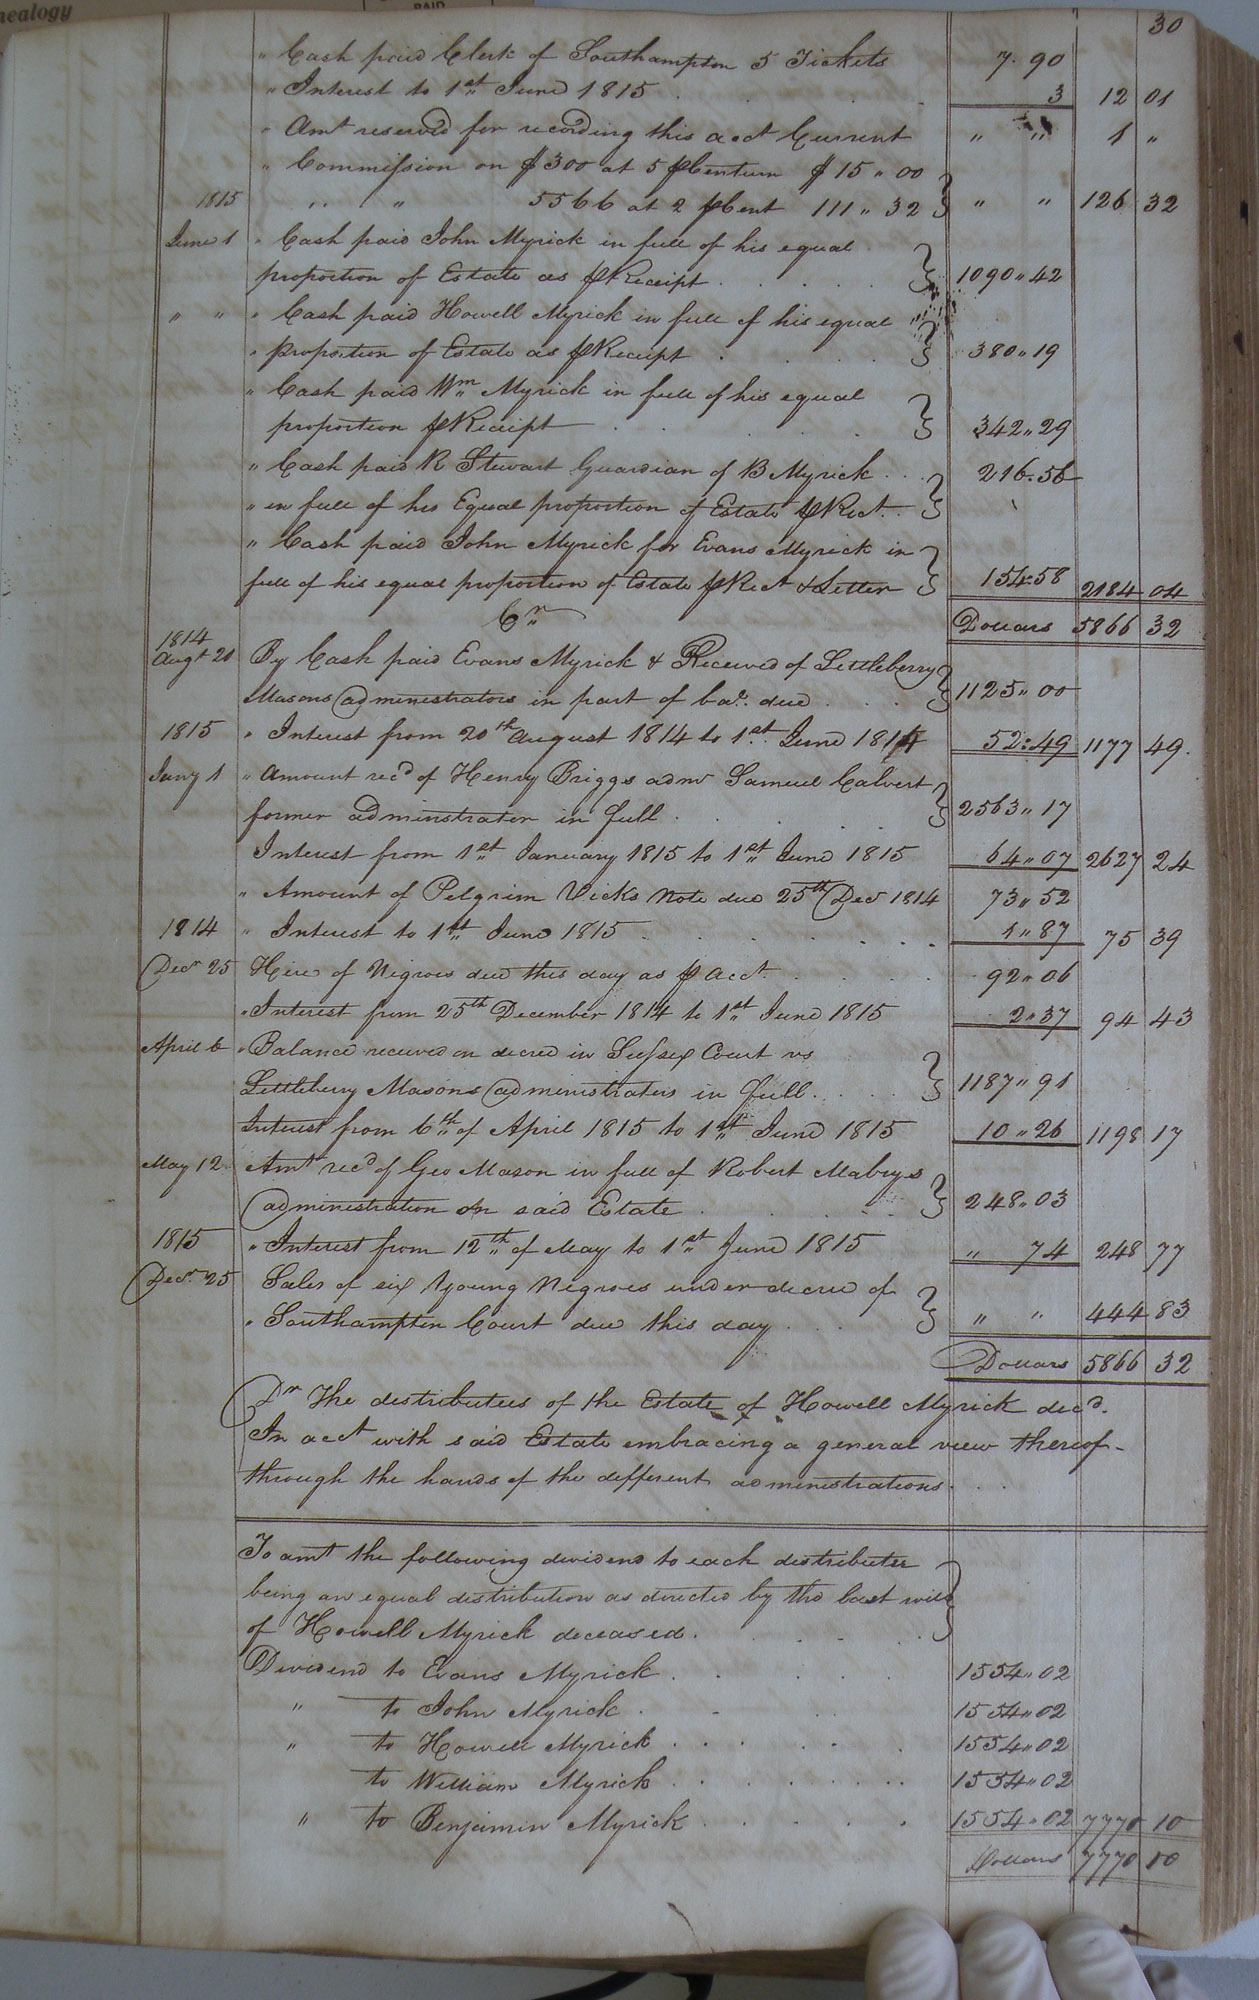 nealogy
PAID
30
" Cash paid Clerk of Southampton 5 Tickets 7.90
" Interest to 1st June 1815 3 12 01
" Amt reserv'd for recording this acct Current " " 1 "
" Commission on $300 at 5 p Centum $15 " 00
1815 " " 5566 at 2 p Cent 111 " 32 " " 126 32
June 1 " Cash paid John Myrick in full of his equal
proportion of Estate as p Receipt 1090 " 42
" " " Cash paid Howell Myrick in full of his equal
" proportion of Estate as p Receipt 380 " 19
" Cash paid Wm Myrick in full of his equal
proportion p Receipt 342 " 29
" Cash paid R Stewart Guardian of B Myrick 216.56
" in full of his Equal proportion of Estate p Rect
" Cash paid John Myrick for Evans Myrick in
full of his equal proportion of Estate p Rect & Letter 154:58 2184 04
Cr Dollars 5866 32
1814
Augt 20 By Cash paid Evans Myrick & Received of Littleberry
Masons administrators in part of bal. due 1125 " 00
1815 " Interest from 20th August 1814 to 1st June 1814 52:49 1177 49
Jany 1 " Amount recd of Henry Briggs admr Samuel Calvert
former administrator in full 2563 " 17
Interest from 1st January 1815 to 1st June 1815 64 " 07 2627 24
" Amount of Pelgrim Vicks note due 25th Decr 1814 73 " 52
1814 " Interest to 1st June 1815 1 " 87 75 39
Decr 25 Hire of Negroes due this day as p acct 92 " 06
" Interest from 25th December 1814 to 1st June 1815 2 " 37 94 43
April 6 " Balance received on decree in Sussex Court vs
Littlebury Masons administrators in full 1187 " 91
Interest from 6th of April 1815 to 1st June 1815 10 " 26 1198 17
May 12 Amt recd of Geo Mason in full of Robert Mabrys
administration on said Estate 248 " 03
1815 " Interest from 12th of May to 1st June 1815 " 74 248 77
Decr 25 Sales of six Young Negroes under decree of
" Southampton Court due this day " " 444 83
Dollars 5866 32
Dr The distributees of the Estate of Howell Myrick decd.
In acct with said Estate embracing a general view thereof
through the hands of the different administrations
To amt the following dividend to each distributee
being an equal distribution as directed by the last will
of Howell Myrick deceased.
Dividend to Evans Myrick 1554 " 02
" to John Myrick 1554 " 02
" to Howell Myrick 1554 " 02
to William Myrick 1554 " 02
" to Benjamin Myrick 1554 " 02 7770 10
Dollars 7770 10